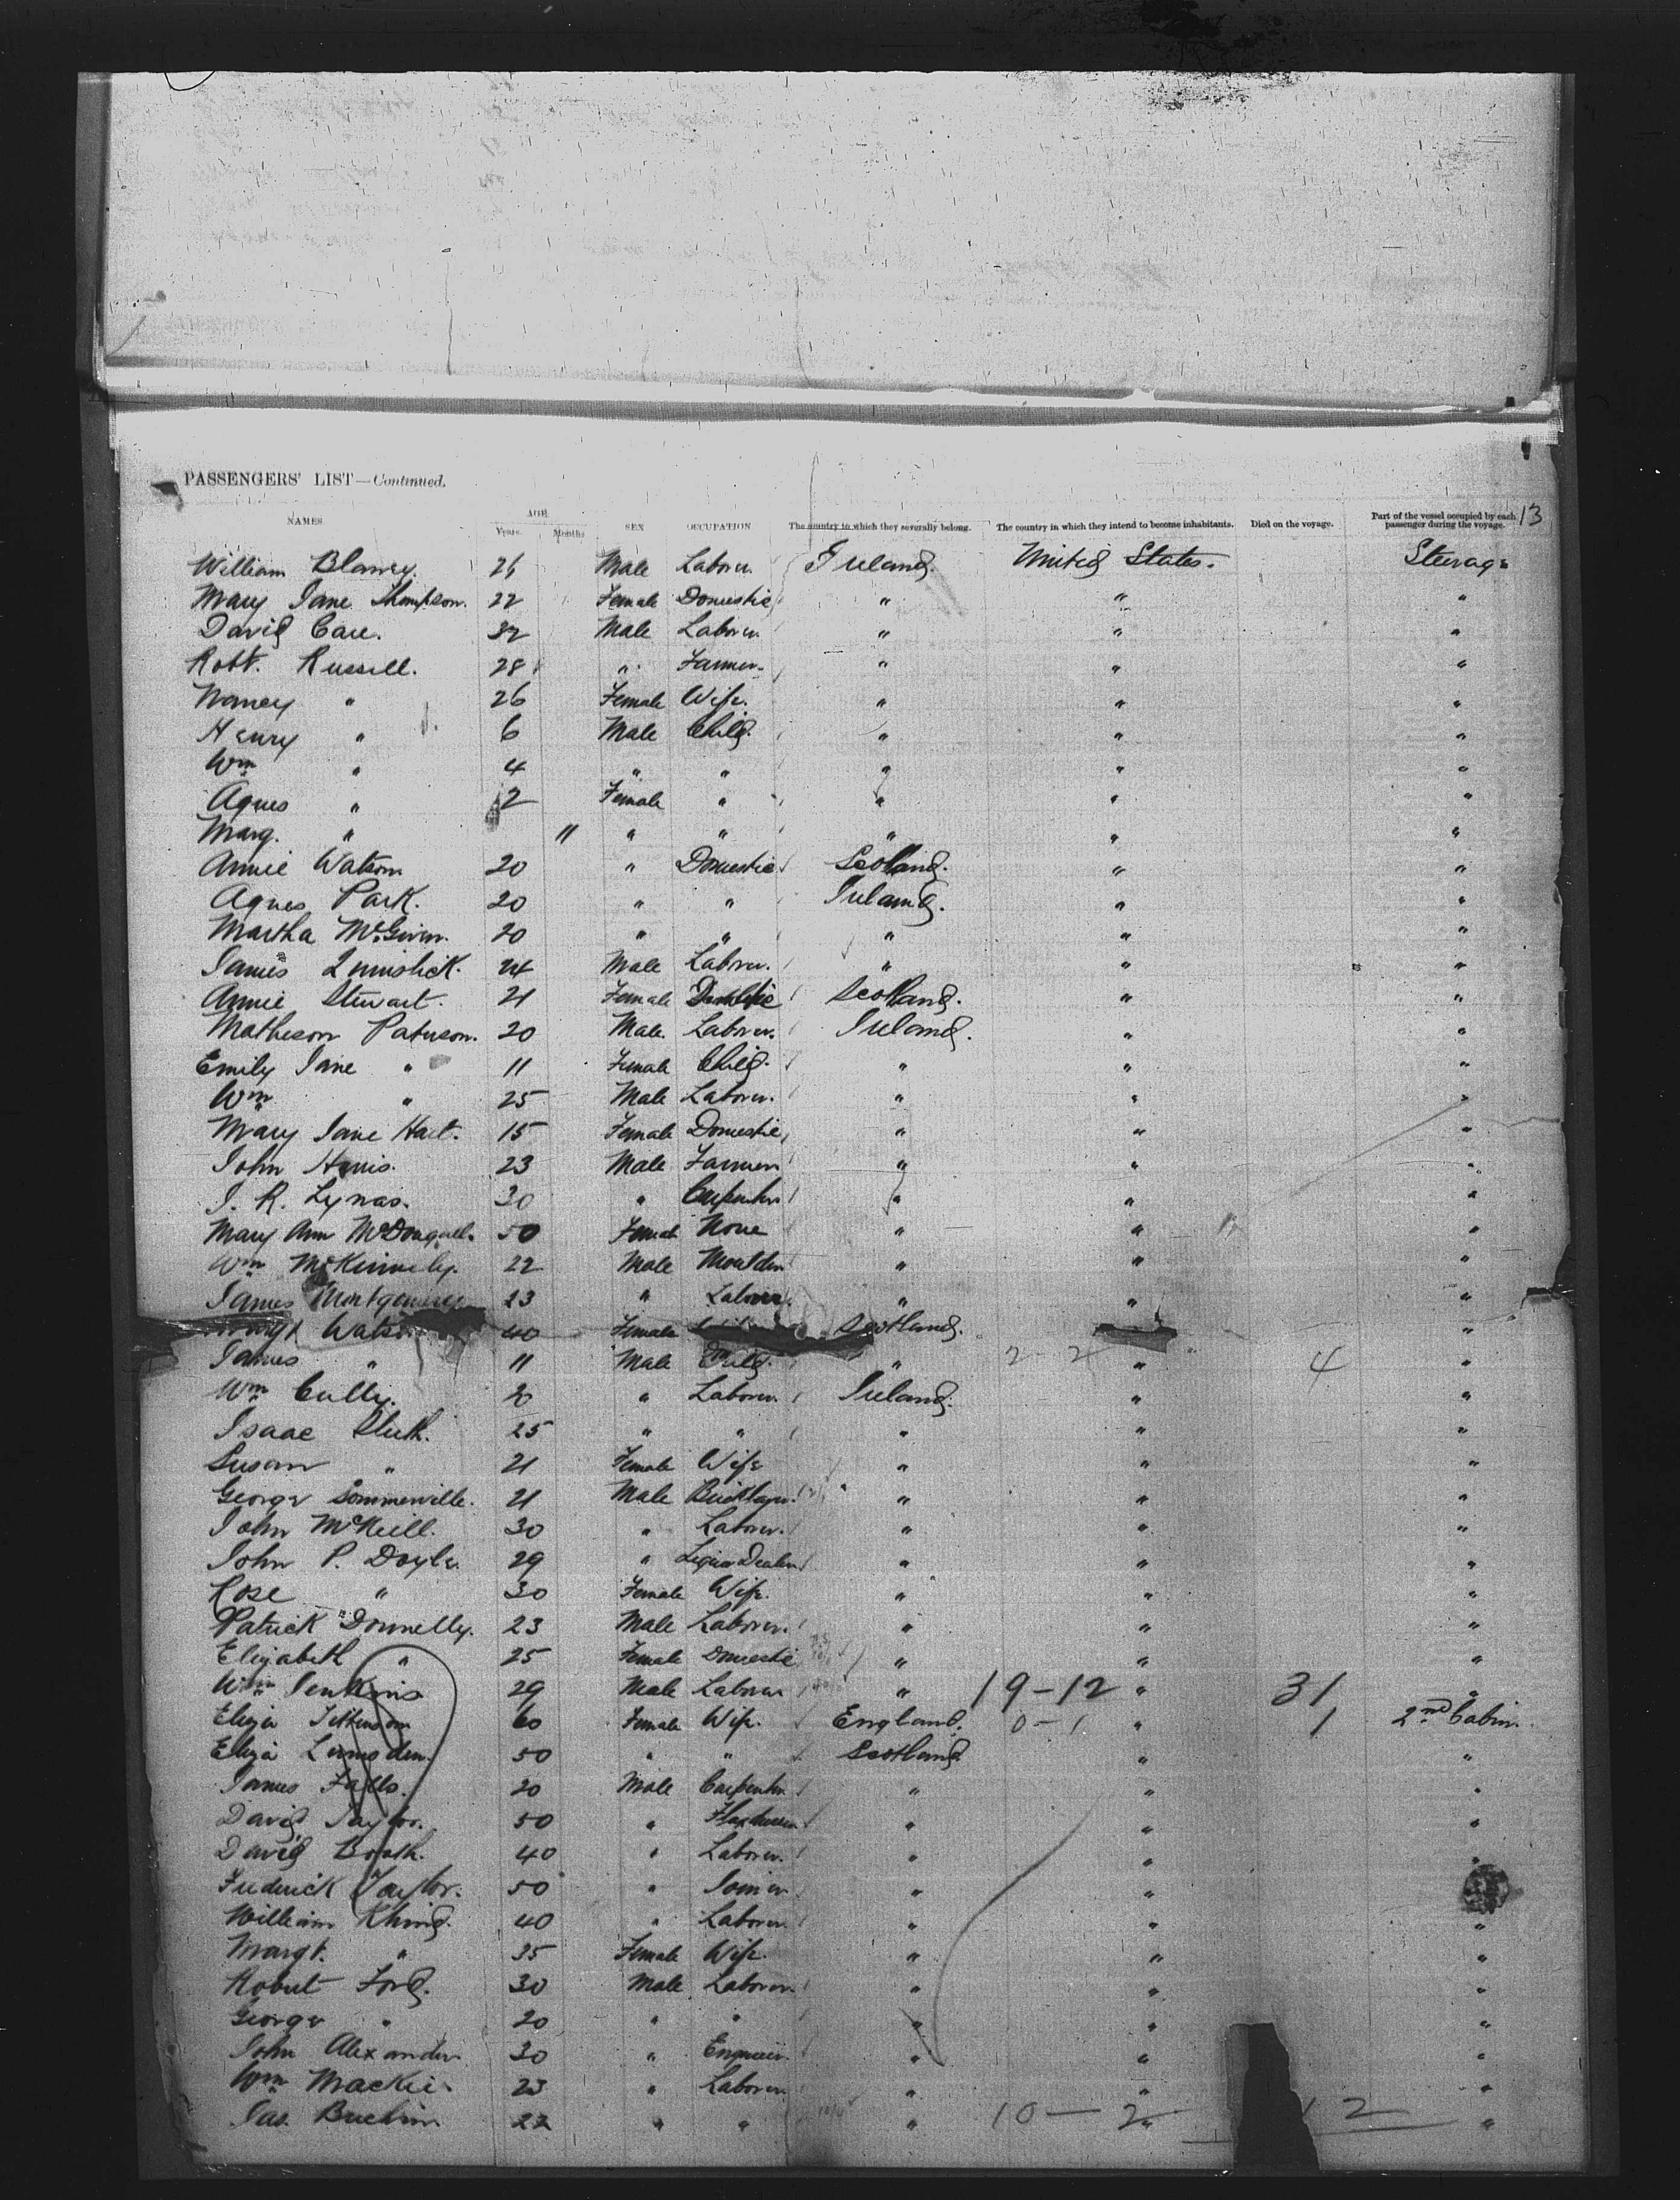 PASSENGERS' LIST—Continued.
NAMES AGE Years. Months SEX OCCUPATION The country to which they severally belong. The country in which they intend to become inhabitants. Died on the voyage. Part of the vessel occupied by each passenger during the voyage. 13
William Blaney. 26 Male Laborer. Ireland. United States. Steerage
Mary Jane Thompson. 22 Female Domestic " " "
David Carr. 32 Male Laborer. " " "
Robt. Russell. 28 " Farmer. " " "
Nancy " 26 Female Wife. " " "
Henry " 6 Male Child. " " "
Wm " 4 " " " " "
Agnes " 2 Female " " " "
Marg. " 11 " " " " "
Annie Watson 20 " Domestic Scotland. " "
Agnes Park. 20 " " Ireland. " "
Martha McGivern. 20 " " " " "
James 24 Male Laborer. " " "
Annie Stewart. 21 Female Domestic Scotland. " "
Matheson Paterson. 20 Male. Laborer. Ireland. " "
Emily Jane " 11 Female Child. " " "
Wm " 25 Male Laborer. " " "
Mary Jane Hart. 15 Female Domestic " " "
John Harris. 23 Male Farmer " " "
J. R. Lynas. 30 " Carpenter " " "
Mary Ann McDougall. 50 Female None " " "
Wm McKinneley. 22 Male Moulder " " "
James Montgomery 23 " Laborer. " " "
Margt Watson 40 Female Scotland. "
James " 11 Male Child. " 2-2 " 4 "
Wm Cully. 20 " Laborer. Ireland. " "
Isaac 25 " " " " "
Susan " 21 Female Wife " " "
George Sommerville. 21 Male Bricklayer. " " "
John McNeill. 30 " Laborer. " " "
John P. Doyle. 29 " Liquor Dealer " " "
Rose " 30 Female Wife. " " "
Patrick Donnelly. 23 Male Laborer. " " "
Elizabeth " 25 Female Domestic " " "
Wm Jenkins 29 Male Laborer " 19-12 " 31 "
Eliza 60 Female Wife. England. 0-1 " 1 2nd Cabin.
Eliza Lumsden. 50 " " Scotland " "
James Falls. 20 Male Carpenter " " "
David Taylor. 50 " " " "
David Booth. 40 " Laborer. " " "
Frederick Taylor. 50 " Joiner " " "
William 40 " Laborer. " " "
Margt. " 35 Female Wife. " " "
Robert Ford. 30 Male Laborer. " " "
George " 20 " " " " "
John Alexander 30 " Engineer. " " "
Wm Mackie 23 " Laborer " " "
Jas. 22 " " " 10-2 " 12 "